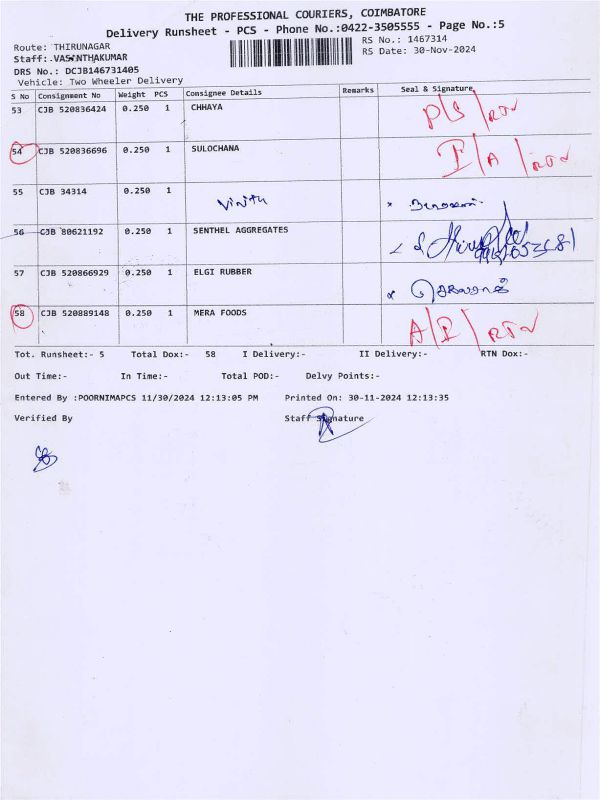 THE PROFESSIONAL COURIERS, COIMBATORE
Delivery Runsheet - PCS - Phone No.:0422-3505555 - Page No.:5
Route: THIRUNAGAR RS No.: 1467314
Staff: VASANTHAKUMAR RS Date: 30-Nov-2024
DRS No.: DCJB146731405
Vehicle: Two Wheeler Delivery
S No Consignment No Weight PCS Consignee Details Remarks Seal & Signature
53 CJB 520836424 0.250 1 CHHAYA P/S/RTN
54 CJB 520836696 0.250 1 SULOCHANA I/A/RTN
55 CJB 34314 0.250 1 Vinitu
56 CJB 80621192 0.250 1 SENTHEL AGGREGATES
57 CJB 520866929 0.250 1 ELGI RUBBER
58 CJB 520889148 0.250 1 MERA FOODS A/I/RTN
Tot. Runsheet:- 5 Total Dox:- 58 I Delivery:- II Delivery:- RTN Dox:-
Out Time:- In Time:- Total POD:- Delvy Points:-
Entered By :POORNIMAPCS 11/30/2024 12:13:05 PM Printed On: 30-11-2024 12:13:35
Verified By Staff Signature